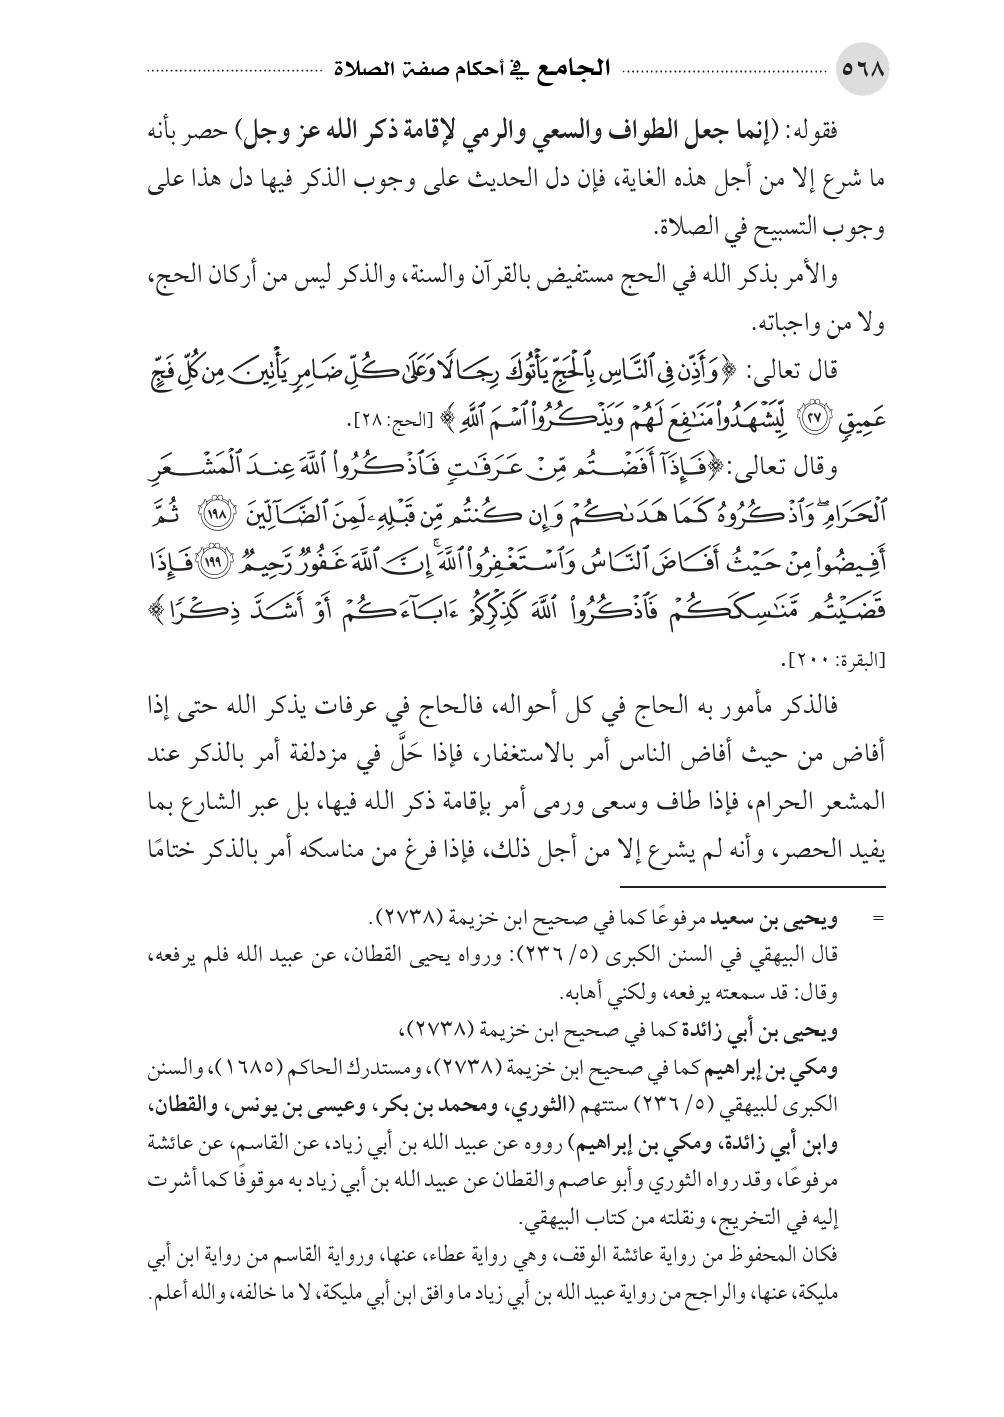 ٥٦٨ الجامع في أحكام صفة الصلاة
فقوله: (إنما جعل الطواف والسعي والرمي لإقامة ذكر الله عز وجل) حصر بأنه
ما شرع إلا من أجل هذه الغاية، فإن دل الحديث على وجوب الذكر فيها دل هذا على
وجوب التسبيح في الصلاة.
والأمر بذكر الله في الحج مستفيض بالقرآن والسنة، والذكر ليس من أركان الحج،
ولا من واجباته.
قال تعالى: ﴿وَأَذِّن فِي ٱلنَّاسِ بِٱلْحَجِّ يَأْتُوكَ رِجَالًا وَعَلَىٰ كُلِّ ضَامِرٍ يَأْتِينَ مِن كُلِّ فَجٍّ
عَمِيقٍ ۝٢٧ لِّيَشْهَدُوا۟ مَنَـٰفِعَ لَهُمْ وَيَذْكُرُوا۟ ٱسْمَ ٱللَّهِ﴾ [الحج: ٢٨].
وقال تعالى: ﴿فَإِذَآ أَفَضْتُم مِّنْ عَرَفَـٰتٍ فَٱذْكُرُوا۟ ٱللَّهَ عِندَ ٱلْمَشْعَرِ
ٱلْحَرَامِ ۖ وَٱذْكُرُوهُ كَمَا هَدَىٰكُمْ وَإِن كُنتُم مِّن قَبْلِهِۦ لَمِنَ ٱلضَّآلِّينَ ۝١٩٨ ثُمَّ
أَفِيضُوا۟ مِنْ حَيْثُ أَفَاضَ ٱلنَّاسُ وَٱسْتَغْفِرُوا۟ ٱللَّهَ ۚ إِنَّ ٱللَّهَ غَفُورٌ رَّحِيمٌ ۝١٩٩ فَإِذَا
قَضَيْتُم مَّنَـٰسِكَكُمْ فَٱذْكُرُوا۟ ٱللَّهَ كَذِكْرِكُمْ ءَابَآءَكُمْ أَوْ أَشَدَّ ذِكْرًا﴾
[البقرة: ٢٠٠].
فالذكر مأمور به الحاج في كل أحواله، فالحاج في عرفات يذكر الله حتى إذا
أفاض من حيث أفاض الناس أمر بالاستغفار، فإذا حَلَّ في مزدلفة أمر بالذكر عند
المشعر الحرام، فإذا طاف وسعى ورمى أمر بإقامة ذكر الله فيها، بل عبر الشارع بما
يفيد الحصر، وأنه لم يشرع إلا من أجل ذلك، فإذا فرغ من مناسكه أمر بالذكر ختامًا
= ويحيى بن سعيد مرفوعًا كما في صحيح ابن خزيمة (٢٧٣٨).
قال البيهقي في السنن الكبرى (٥/ ٢٣٦): ورواه يحيى القطان، عن عبيد الله فلم يرفعه،
وقال: قد سمعته يرفعه، ولكني أهابه.
ويحيى بن أبي زائدة كما في صحيح ابن خزيمة (٢٧٣٨)،
ومكي بن إبراهيم كما في صحيح ابن خزيمة (٢٧٣٨)، ومستدرك الحاكم (١٦٨٥)، والسنن
الكبرى للبيهقي (٥/ ٢٣٦) ستتهم (الثوري، ومحمد بن بكر، وعيسى بن يونس، والقطان،
وابن أبي زائدة، ومكي بن إبراهيم) رووه عن عبيد الله بن أبي زياد، عن القاسم، عن عائشة
مرفوعًا، وقد رواه الثوري وأبو عاصم والقطان عن عبيد الله بن أبي زياد به موقوفًا كما أشرت
إليه في التخريج، ونقلته من كتاب البيهقي.
فكان المحفوظ من رواية عائشة الوقف، وهي رواية عطاء، عنها، ورواية القاسم من رواية ابن أبي
مليكة، عنها، والراجح من رواية عبيد الله بن أبي زياد ما وافق ابن أبي مليكة، لا ما خالفه، والله أعلم.